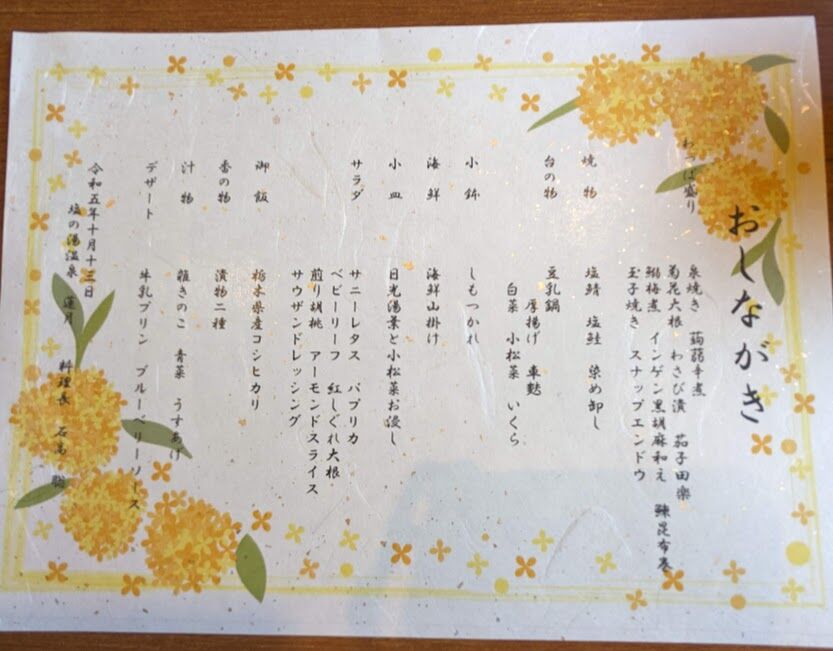 おしながき
わっぱ盛り
泉焼き 蒟蒻辛煮
菊花大根 わさび漬 茄子田楽
鰯梅煮 インゲン黒胡麻和え 鰊昆布巻
玉子焼き スナップエンドウ
焼物 塩鯖 塩鮭 染め卸し
台の物 豆乳鍋
厚揚げ 車麩
白菜 小松菜 いくら
小鉢 しもつかれ
海鮮 海鮮山掛け
小皿 日光湯葉と小松菜お浸し
サラダ サニーレタス パプリカ
ベビーリーフ 紅しぐれ大根
煎り胡桃 アーモンドスライス
サウザンドレッシング
御飯 栃木県産コシヒカリ
香の物 漬物二種
汁物 雑きのこ 青菜 うすあげ
デザート 牛乳プリン ブルーベリーソース
令和五年十月十三日
塩の湯温泉 蓮月 料理長 石高 聡